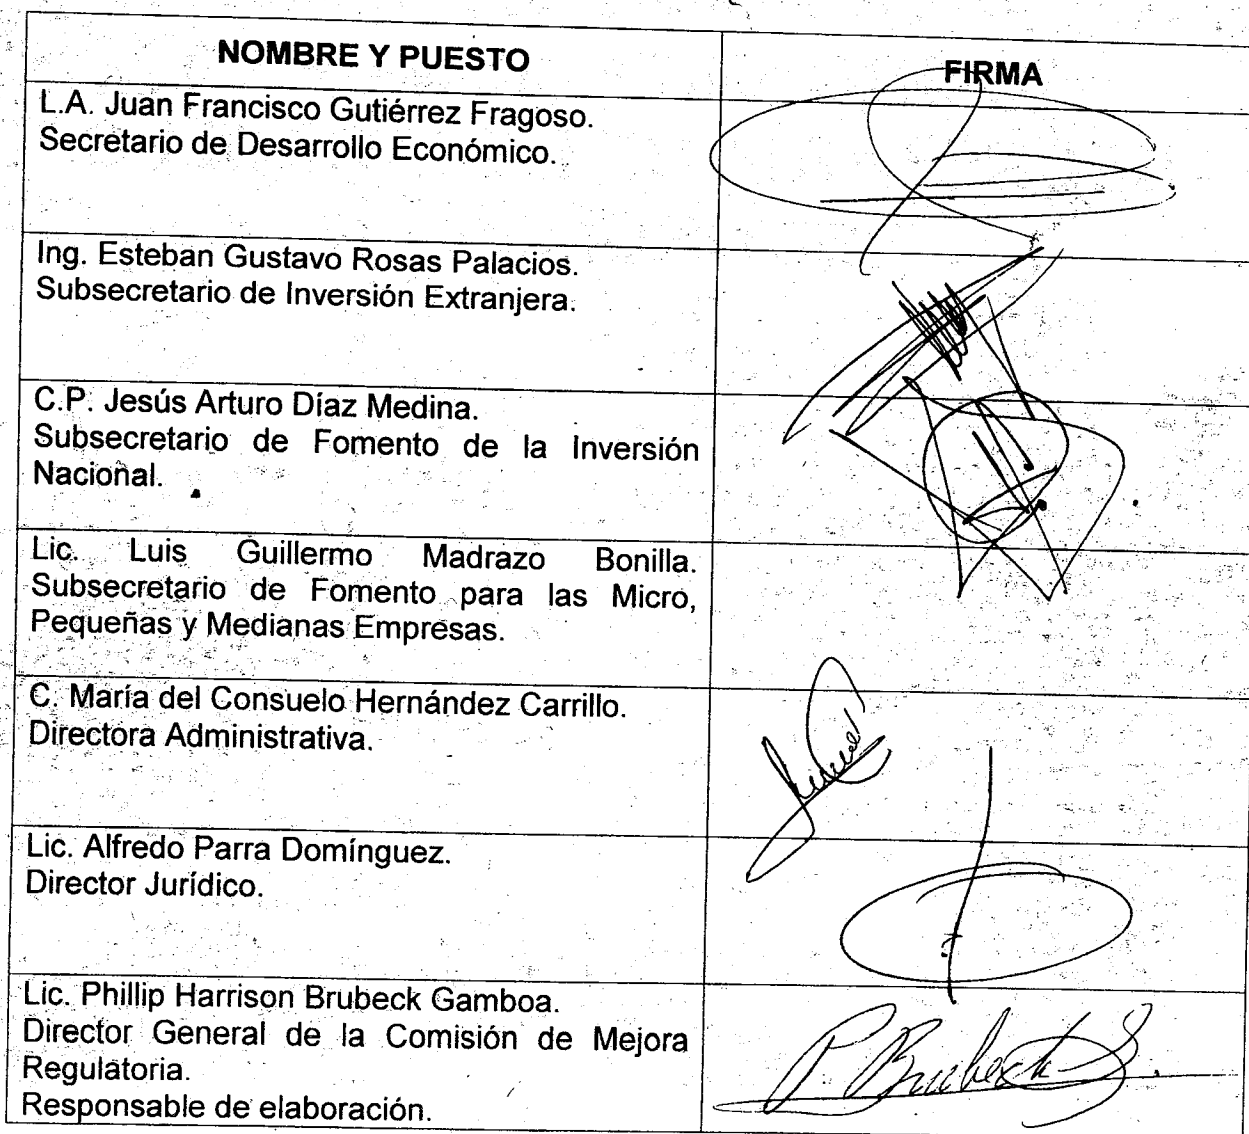 NOMBRE Y PUESTO
FIRMA
L.A. Juan Francisco Gutiérrez Fragoso.
Secretario de Desarrollo Económico.
Ing. Esteban Gustavo Rosas Palacios.
Subsecretario de Inversión Extranjera.
C.P. Jesús Arturo Díaz Medina.
Subsecretario de Fomento de la Inversión
Nacional.
Lic. Luis Guillermo Madrazo Bonilla.
Subsecretario de Fomento para las Micro,
Pequeñas y Medianas Empresas.
C. María del Consuelo Hernández Carrillo.
Directora Administrativa.
Lic. Alfredo Parra Domínguez.
Director Jurídico.
Lic. Phillip Harrison Brubeck Gamboa.
Director General de la Comisión de Mejora
Regulatoria.
Responsable de elaboración.
P. Brubeck G.